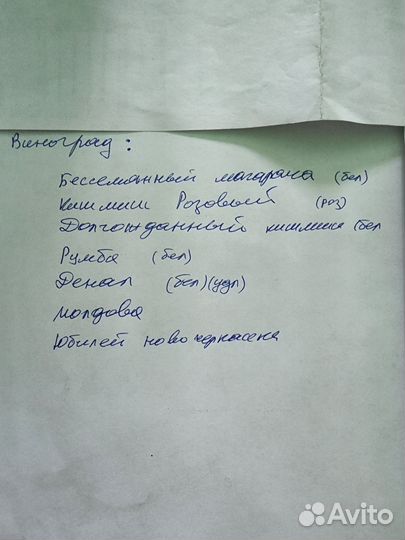 Виноград:
Бессемянный магарача (бел)
кишмиш Розовый (роз)
Долгожданный кишмиш (бел
Румба (бел)
Денал (бел)(удл)
молдова
Юбилей новочеркасска
Avito